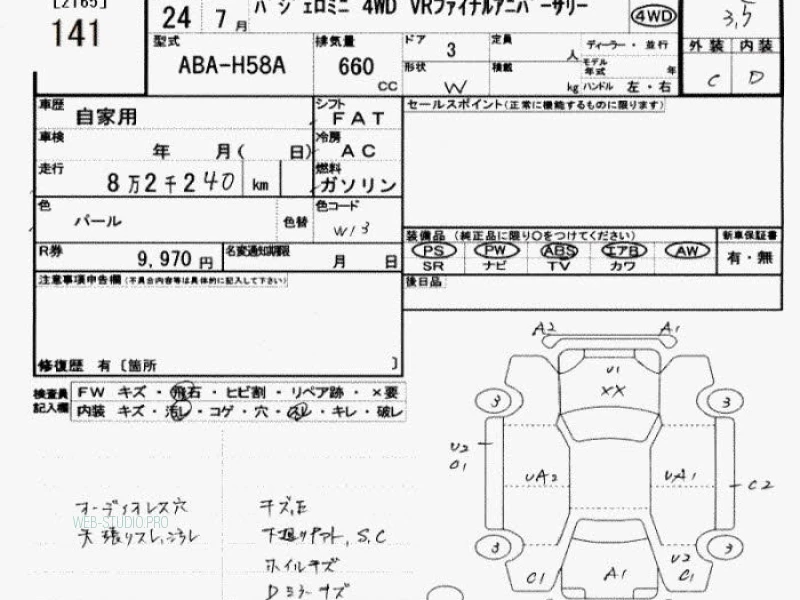 [2165]
141
24 7月
パジェロミニ 4WD VRファイナルアニバーサリー
4WD
3,5
型式
ABA-H58A
排気量
660
CC
ドア 3
定員 人
ディーラー・並行
モデル年式 年
形状 W
積載 kg
ハンドル 左・右
外装 内装
C D
車歴 自家用
シフト FAT
車検 年 月( 日)
冷房 AC
走行 8万2千240 km
燃料 ガソリン
色 パール
色替
色コード W13
R券 9,970円
名変通知期限 月 日
セールスポイント(正常に機能するものに限ります)
装備品 (純正品に限り○をつけてください)
新車保証書
PS PW ABS エアB AW
SR ナビ TV カワ
有・無
後日品
注意事項申告欄(不具合内容等は具体的に記入して下さい)
修復歴 有〔箇所 〕
検査員記入欄
FW キズ・飛石・ヒビ割・リペア跡・×要
内装 キズ・汚レ・コゲ・穴・スレ・キレ・破レ
オーディオレス穴
天張りスレ、
WEB-STUDIO.PRO
キズ,E
S,C
ホイルキズ
Dミラーキズ
A2 A1
U1
XX
3 3
U2
O1
UA2 UA1
C2
3 3
C1 A1 U2
C1